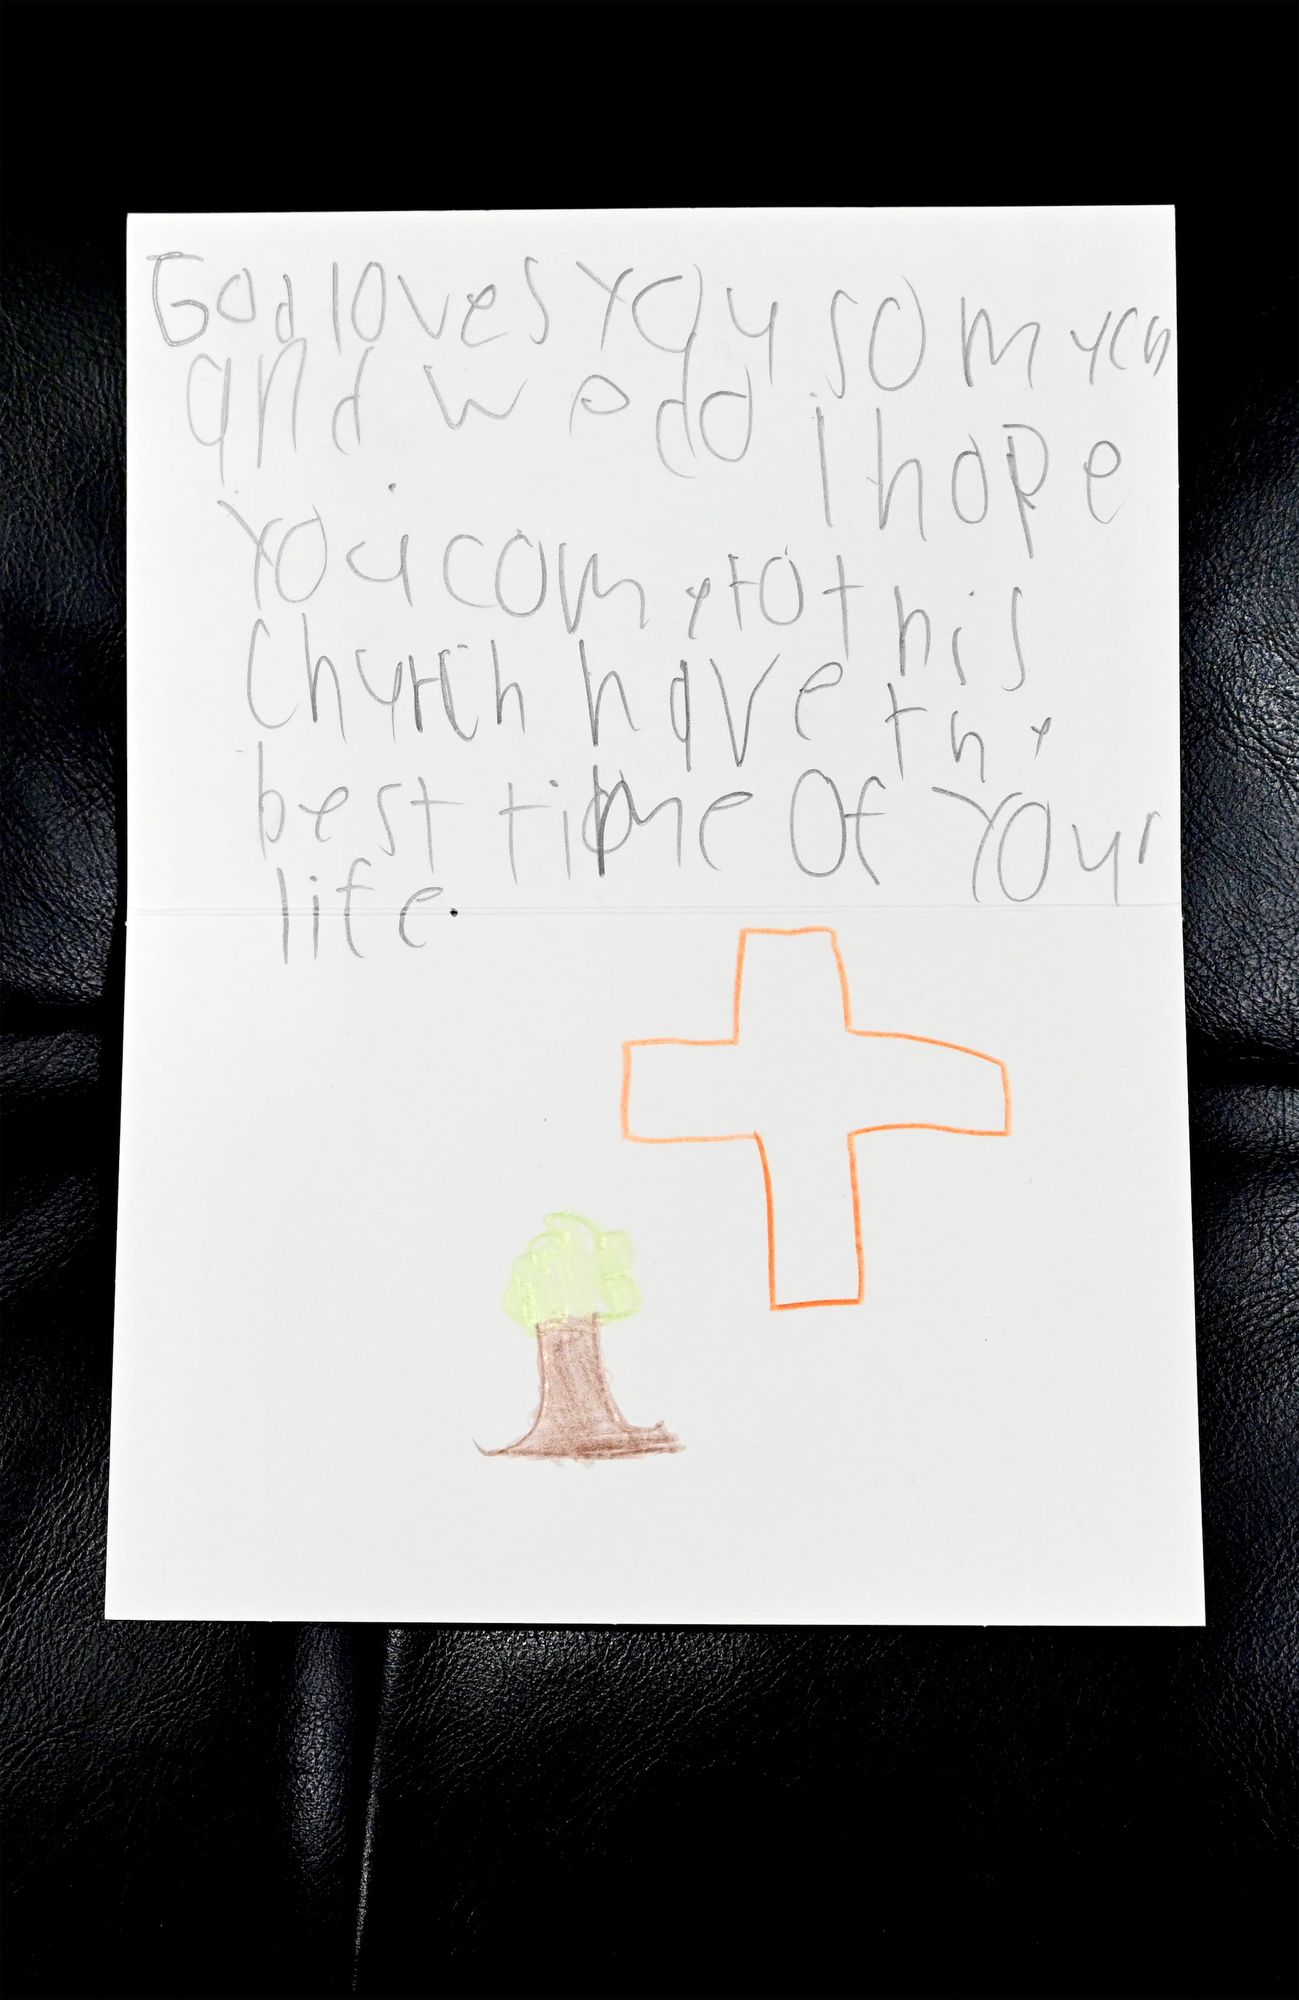 God loves you so much
and we do I hope
You come to this
Church have the
best time Of Your
life.